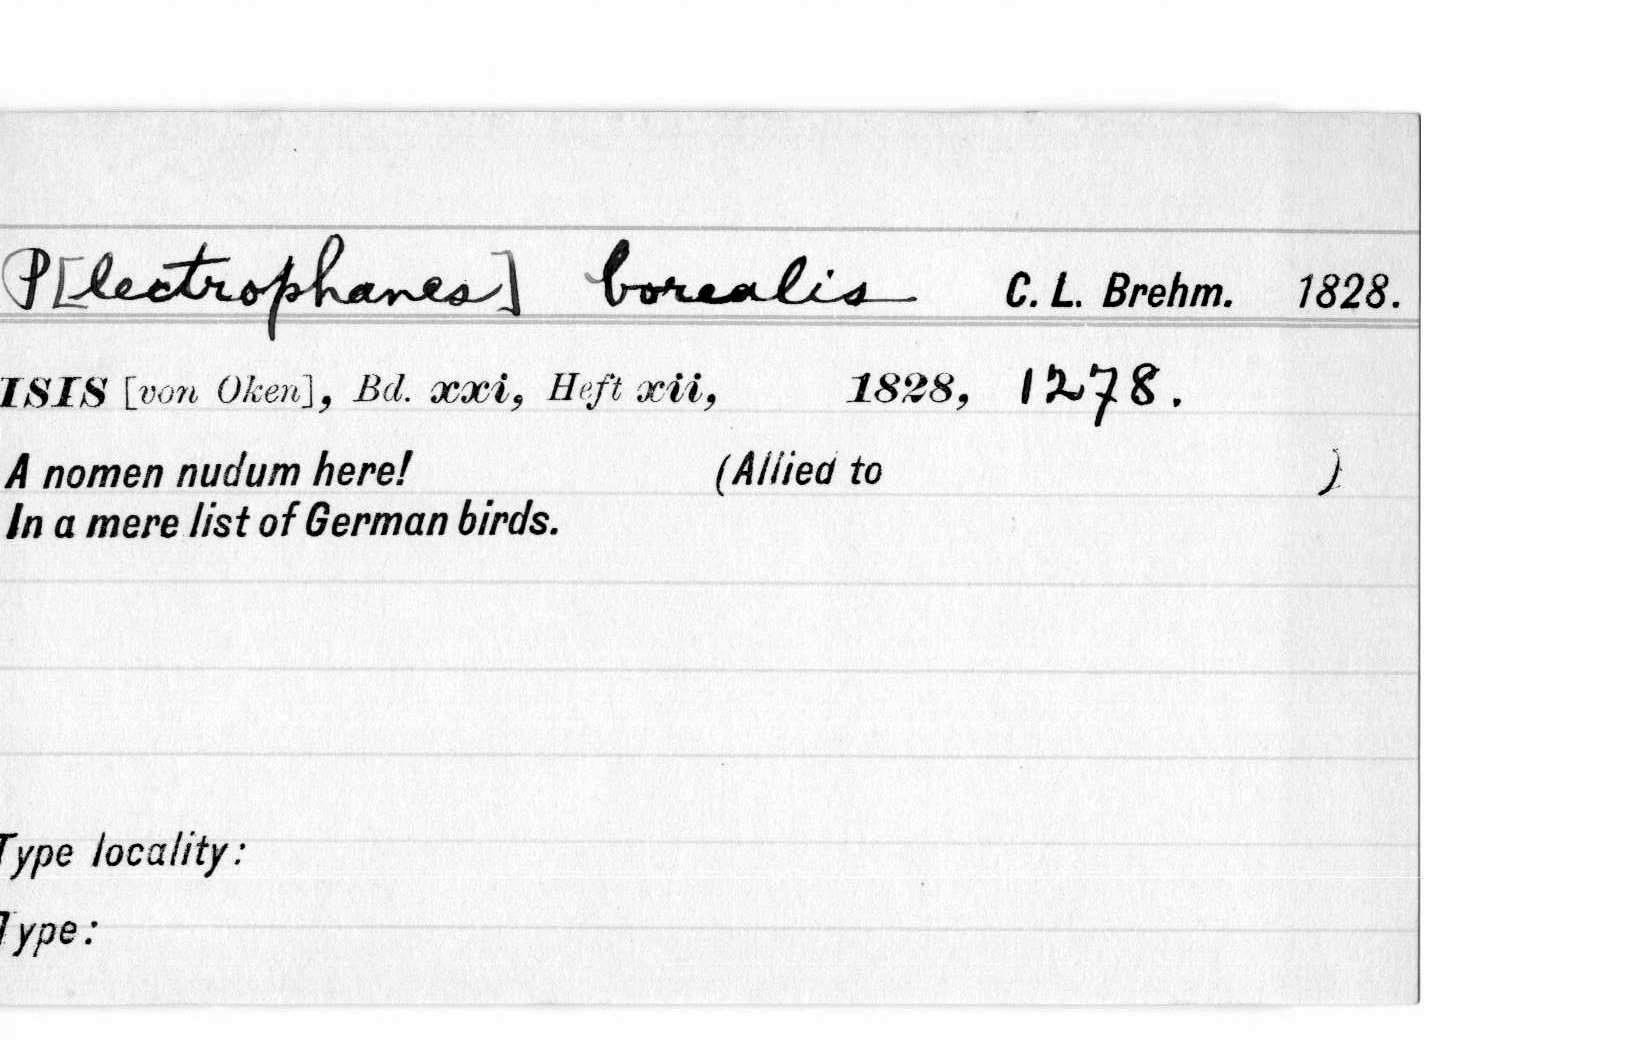 P[lectrophanes] borealis C. L. Brehm. 1828.
ISIS [von Oken], Bd. xxi, Heft xii, 1828, 1278.
A nomen nudum here! (Allied to )
In a mere list of German birds.
Type locality:
Type: